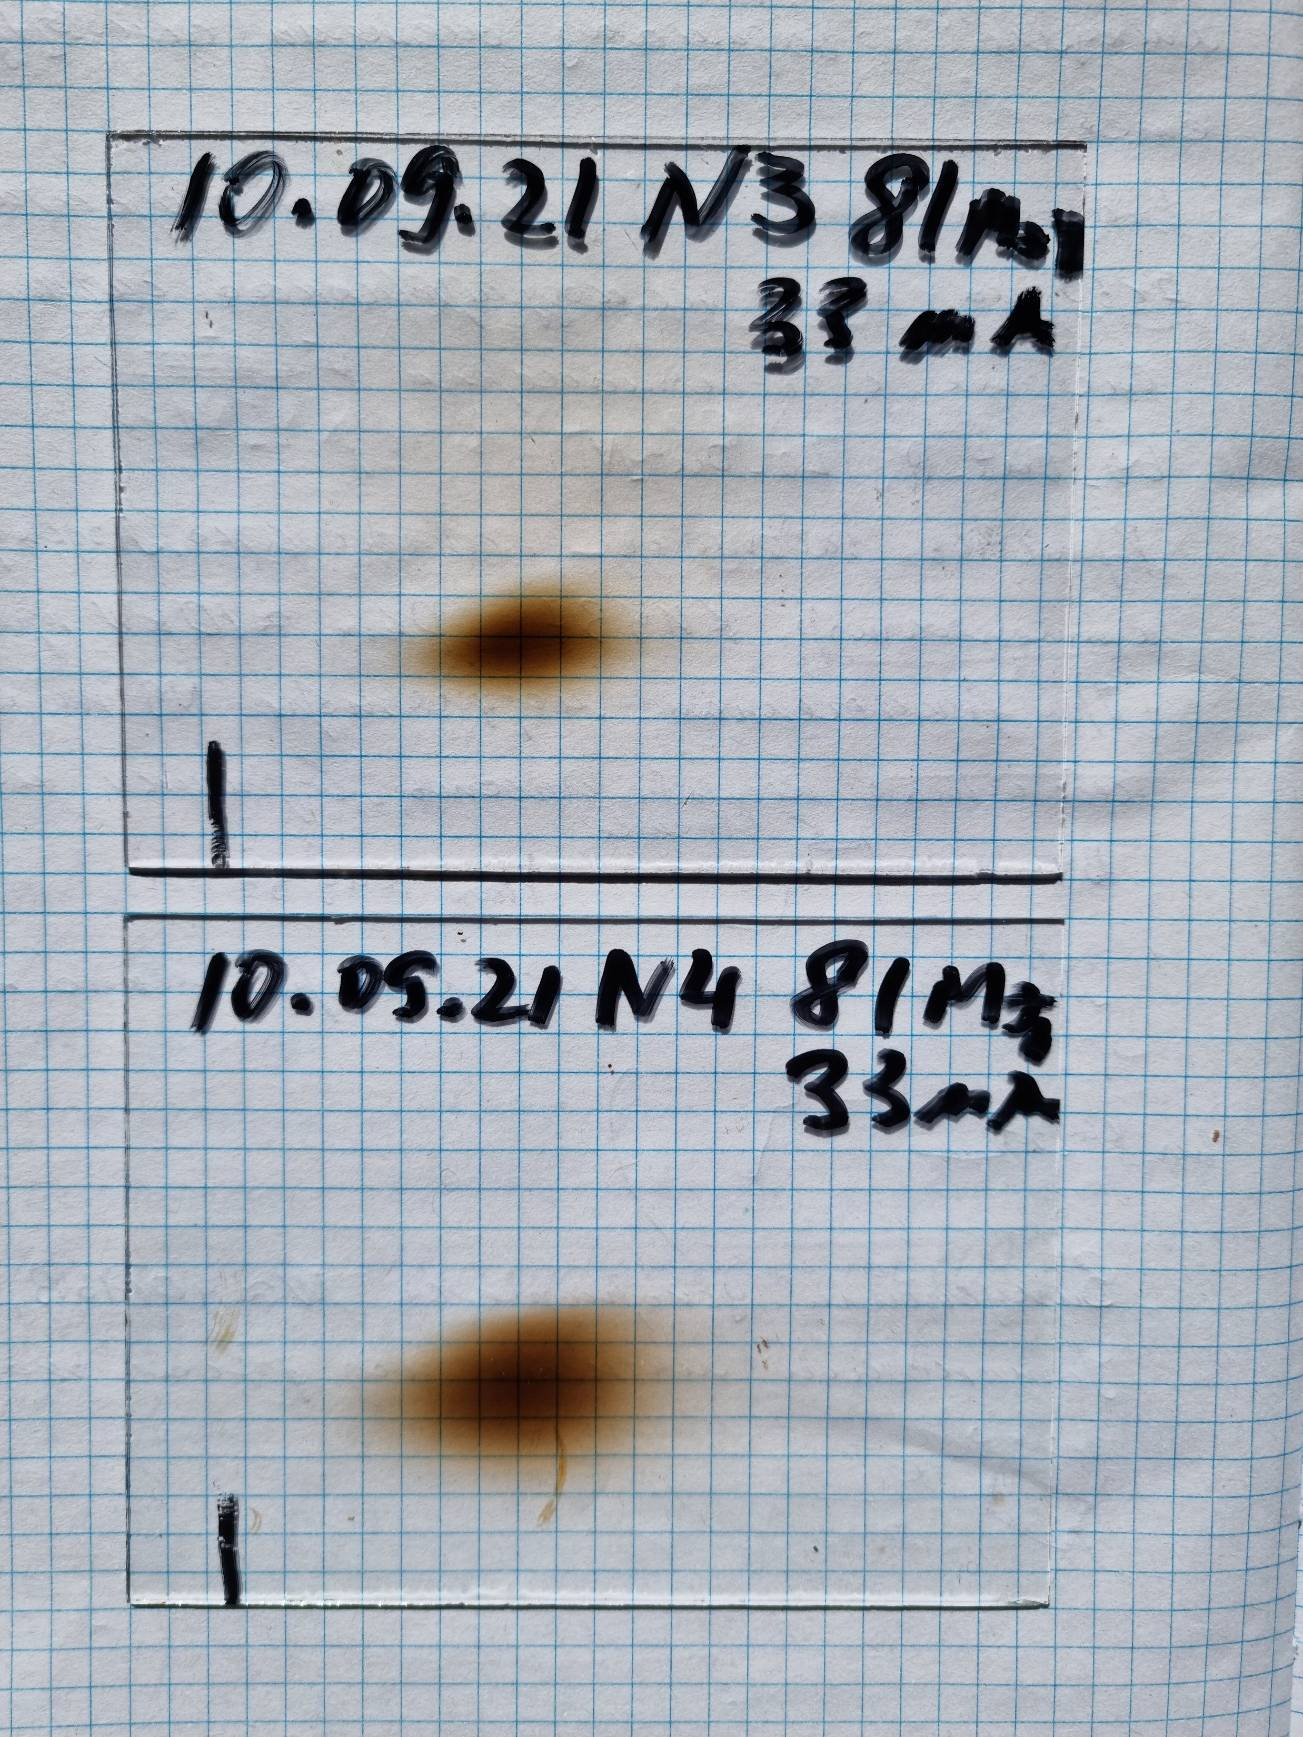 10.09.21 N3 81
33 mA
10.09.21 N4 81
33 mA